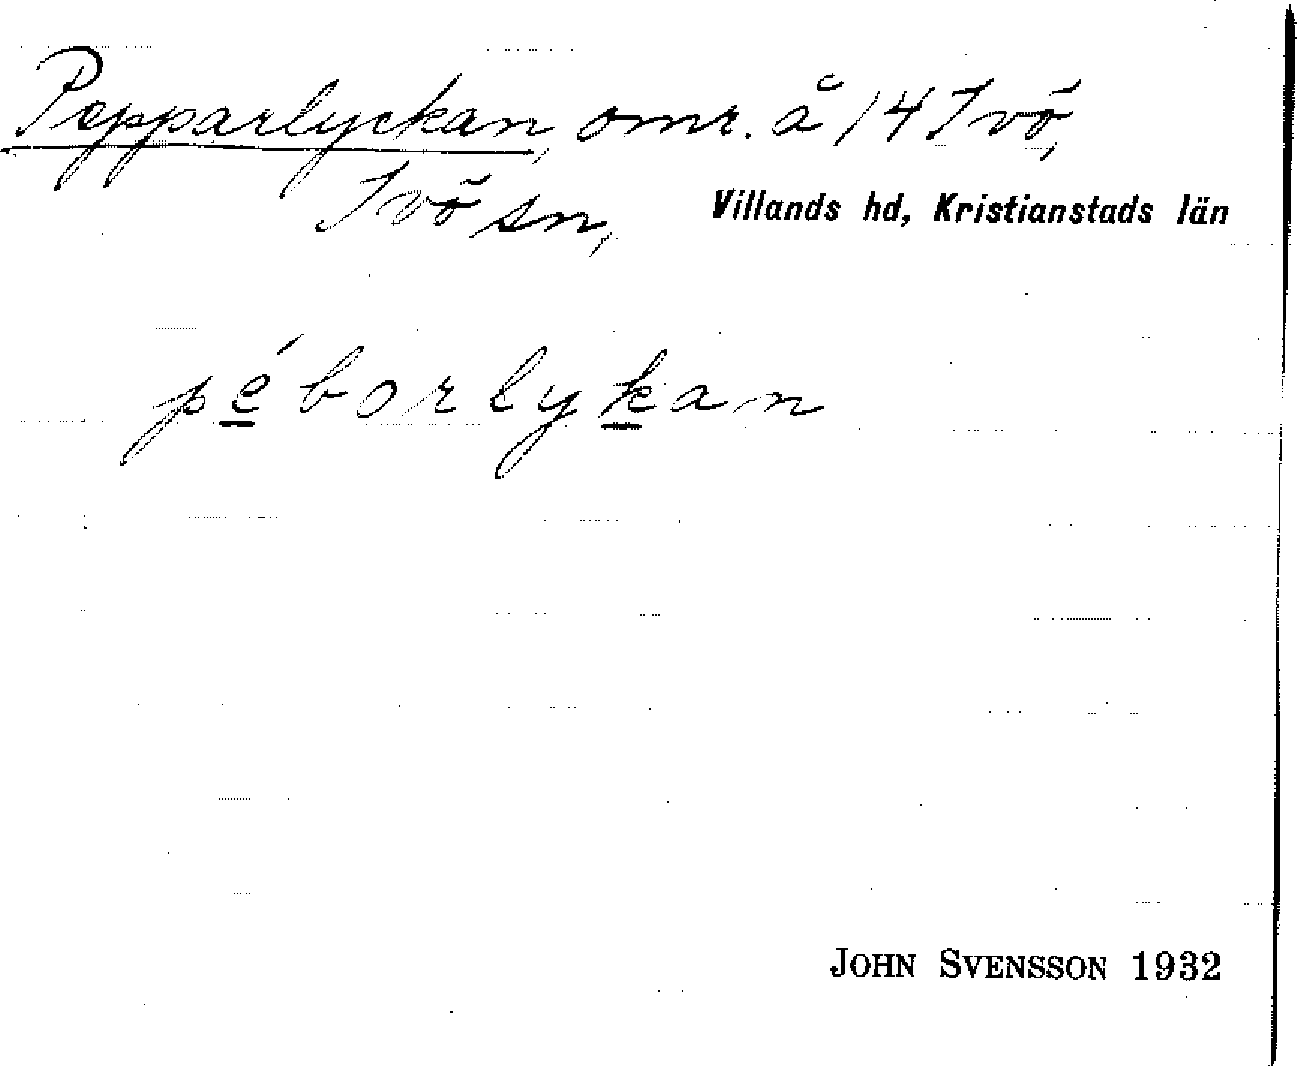 Pepparlyckan, omr. å 14 Ivö,
Ivö sn, Villands hd, Kristianstads län
péborlykan
JOHN SVENSSON 1932